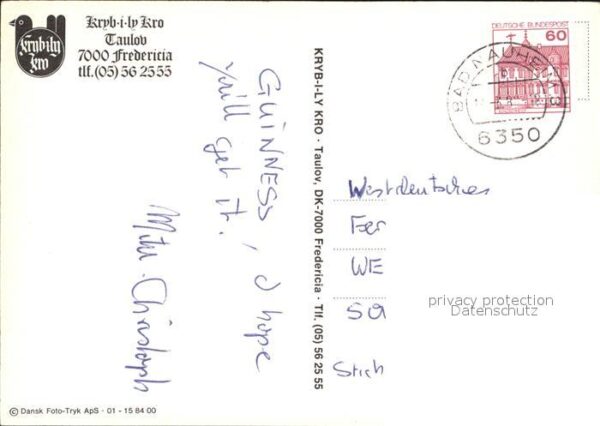 Kryb-i-ly Kro
Taulov
7000 Fredericia
tlf. (05) 56 25 55
Kryb-i-ly
Kro
GUINNESS, I hope
you'll get it.
Christoph
KRYB-I-LY KRO · Taulov, DK-7000 Fredericia · Tlf. (05) 56 25 55
DEUTSCHE BUNDESPOST
60
BAD NAUHEIM
6350
Westdeutsches
Fer
WE
SO
Stich
privacy protection
Datenschutz
© Dansk Foto-Tryk ApS - 01 - 15 84 00